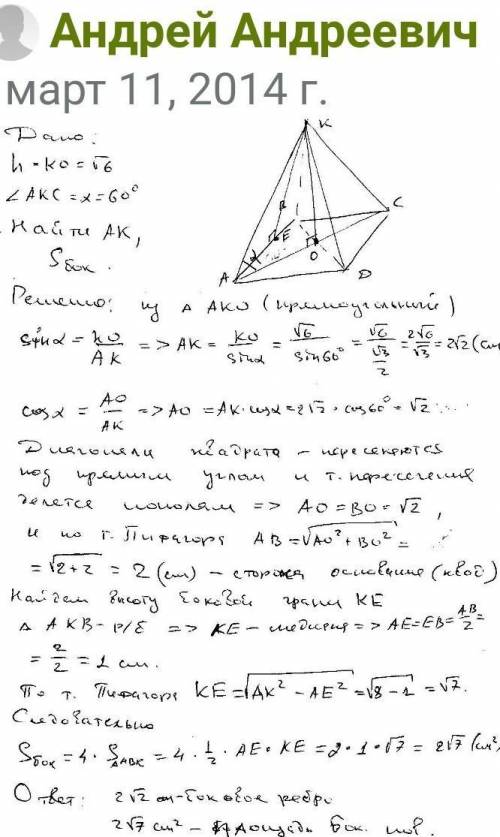 Андрей Андреевич
март 11, 2014 г.
Дано:
h = KO = √6
∠AKC = α = 60°
Найти AK,
Sбок.
K
B
C
E
α
O
A
D
Решение: из Δ AKO (прямоугольный)
sinα = KO/AK => AK = KO/sinα = √6/sin60° = √6/(√3/2) = 2√6/√3 = 2√2 (см
cosα = AO/AK => AO = AK·cosα = 2√2 · cos60° = √2
Диагонали квадрата – пересекаются
под прямым углом и т. пересечения
делятся пополам => AO = BO = √2,
и по т. Пифагора AB = √AO² + BO² =
= √2+2 = 2 (cm) – сторона основания (квад)
Найдем высоту боковой грани KE
Δ AKB – р/б => KE – медиана => AE = EB = AB/2 =
= 2/2 = 1 cm.
По т. Пифагора KE = √AK² – AE² = √8 – 1 = √7.
Следовательно
Sбок = 4 · SΔABK = 4 · 1/2 · AE · KE = 2 · 1 · √7 = 2√7 (cm²)
Ответ: 2√2 cm – боковое ребро
2√7 cm² – площадь бок. пов.